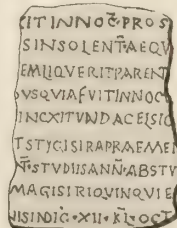 CIT INNOC̄·PROS
SINSOLENT̄AEQV
EMLIQVERITPARENT
OVSQVIAFVITINNOC
INCXITVNDACELSIC
TSTYGISIRAPRAEMEN
N̄·STVDIISANN̄·ABSTV
MAGISIRIQVINQVIE
NISINDIC̄·XII·KL̄·OCT